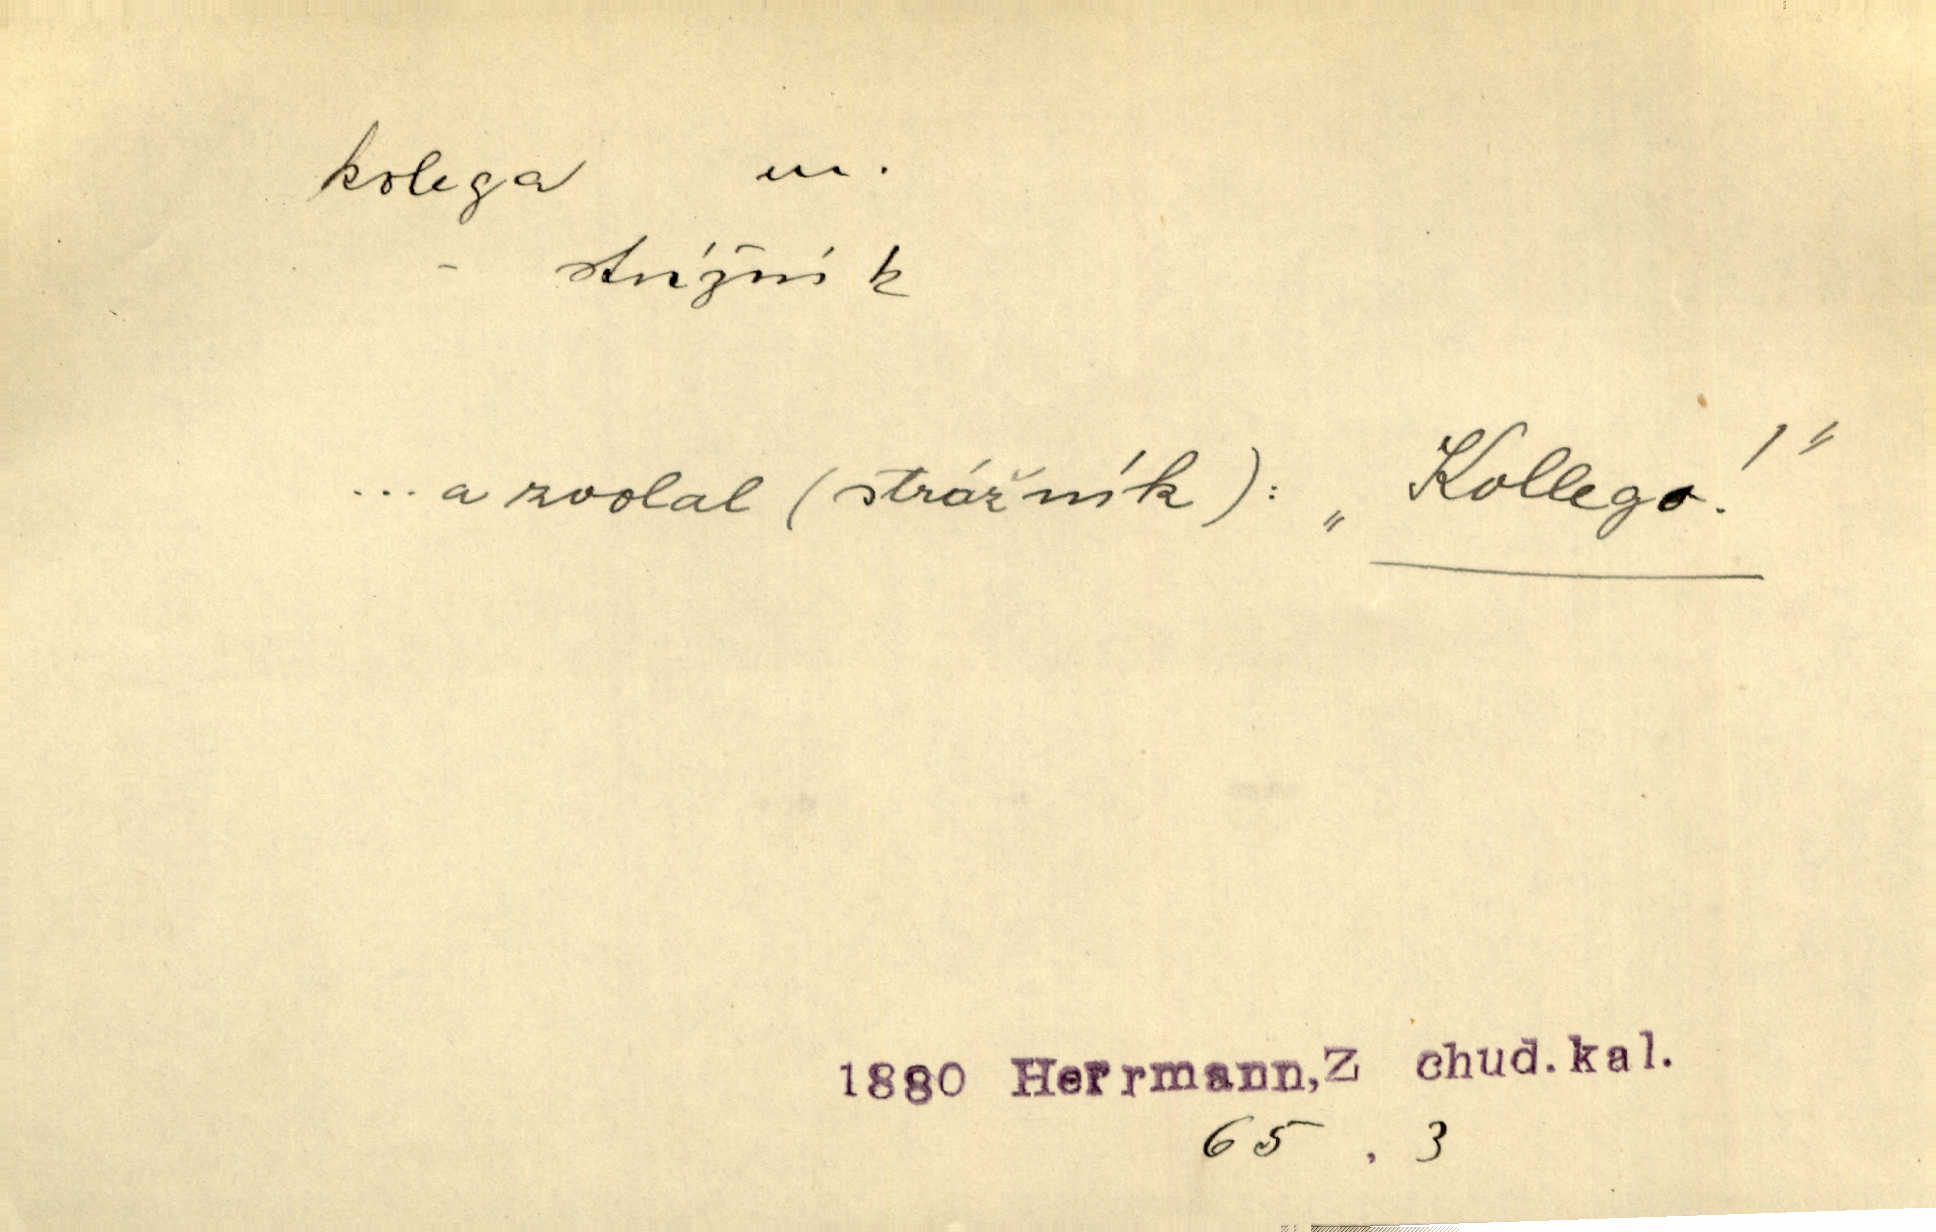 kolega m.
- strážník
... a zvolal (strážník): „Kollego!"
1880 Herrmann,Z chud.kal.
65 , 3